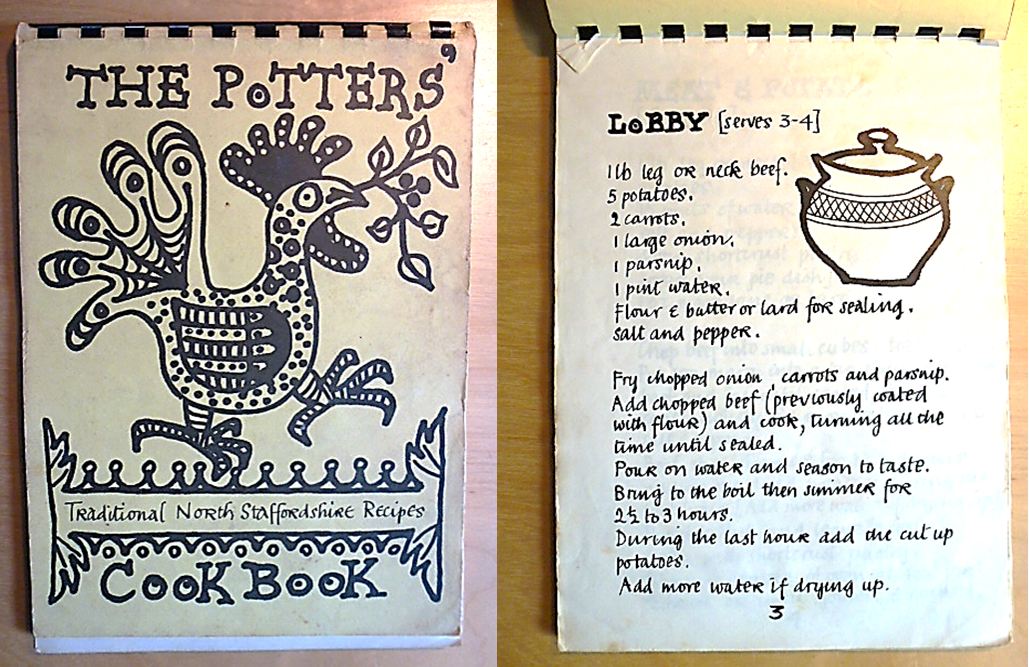 THE POTTERS'
Traditional North Staffordshire Recipes
COOK BOOK
LOBBY [serves 3-4]
1 lb leg or neck beef.
5 potatoes.
2 carrots.
1 large onion.
1 parsnip.
1 pint water.
Flour & butter or lard for sealing.
salt and pepper.
Fry chopped onion, carrots and parsnip.
Add chopped beef (previously coated
with flour) and cook, turning all the
time until sealed.
Pour on water and season to taste.
Bring to the boil then simmer for
2½ to 3 hours.
During the last hour add the cut up
potatoes.
Add more water if drying up.
3